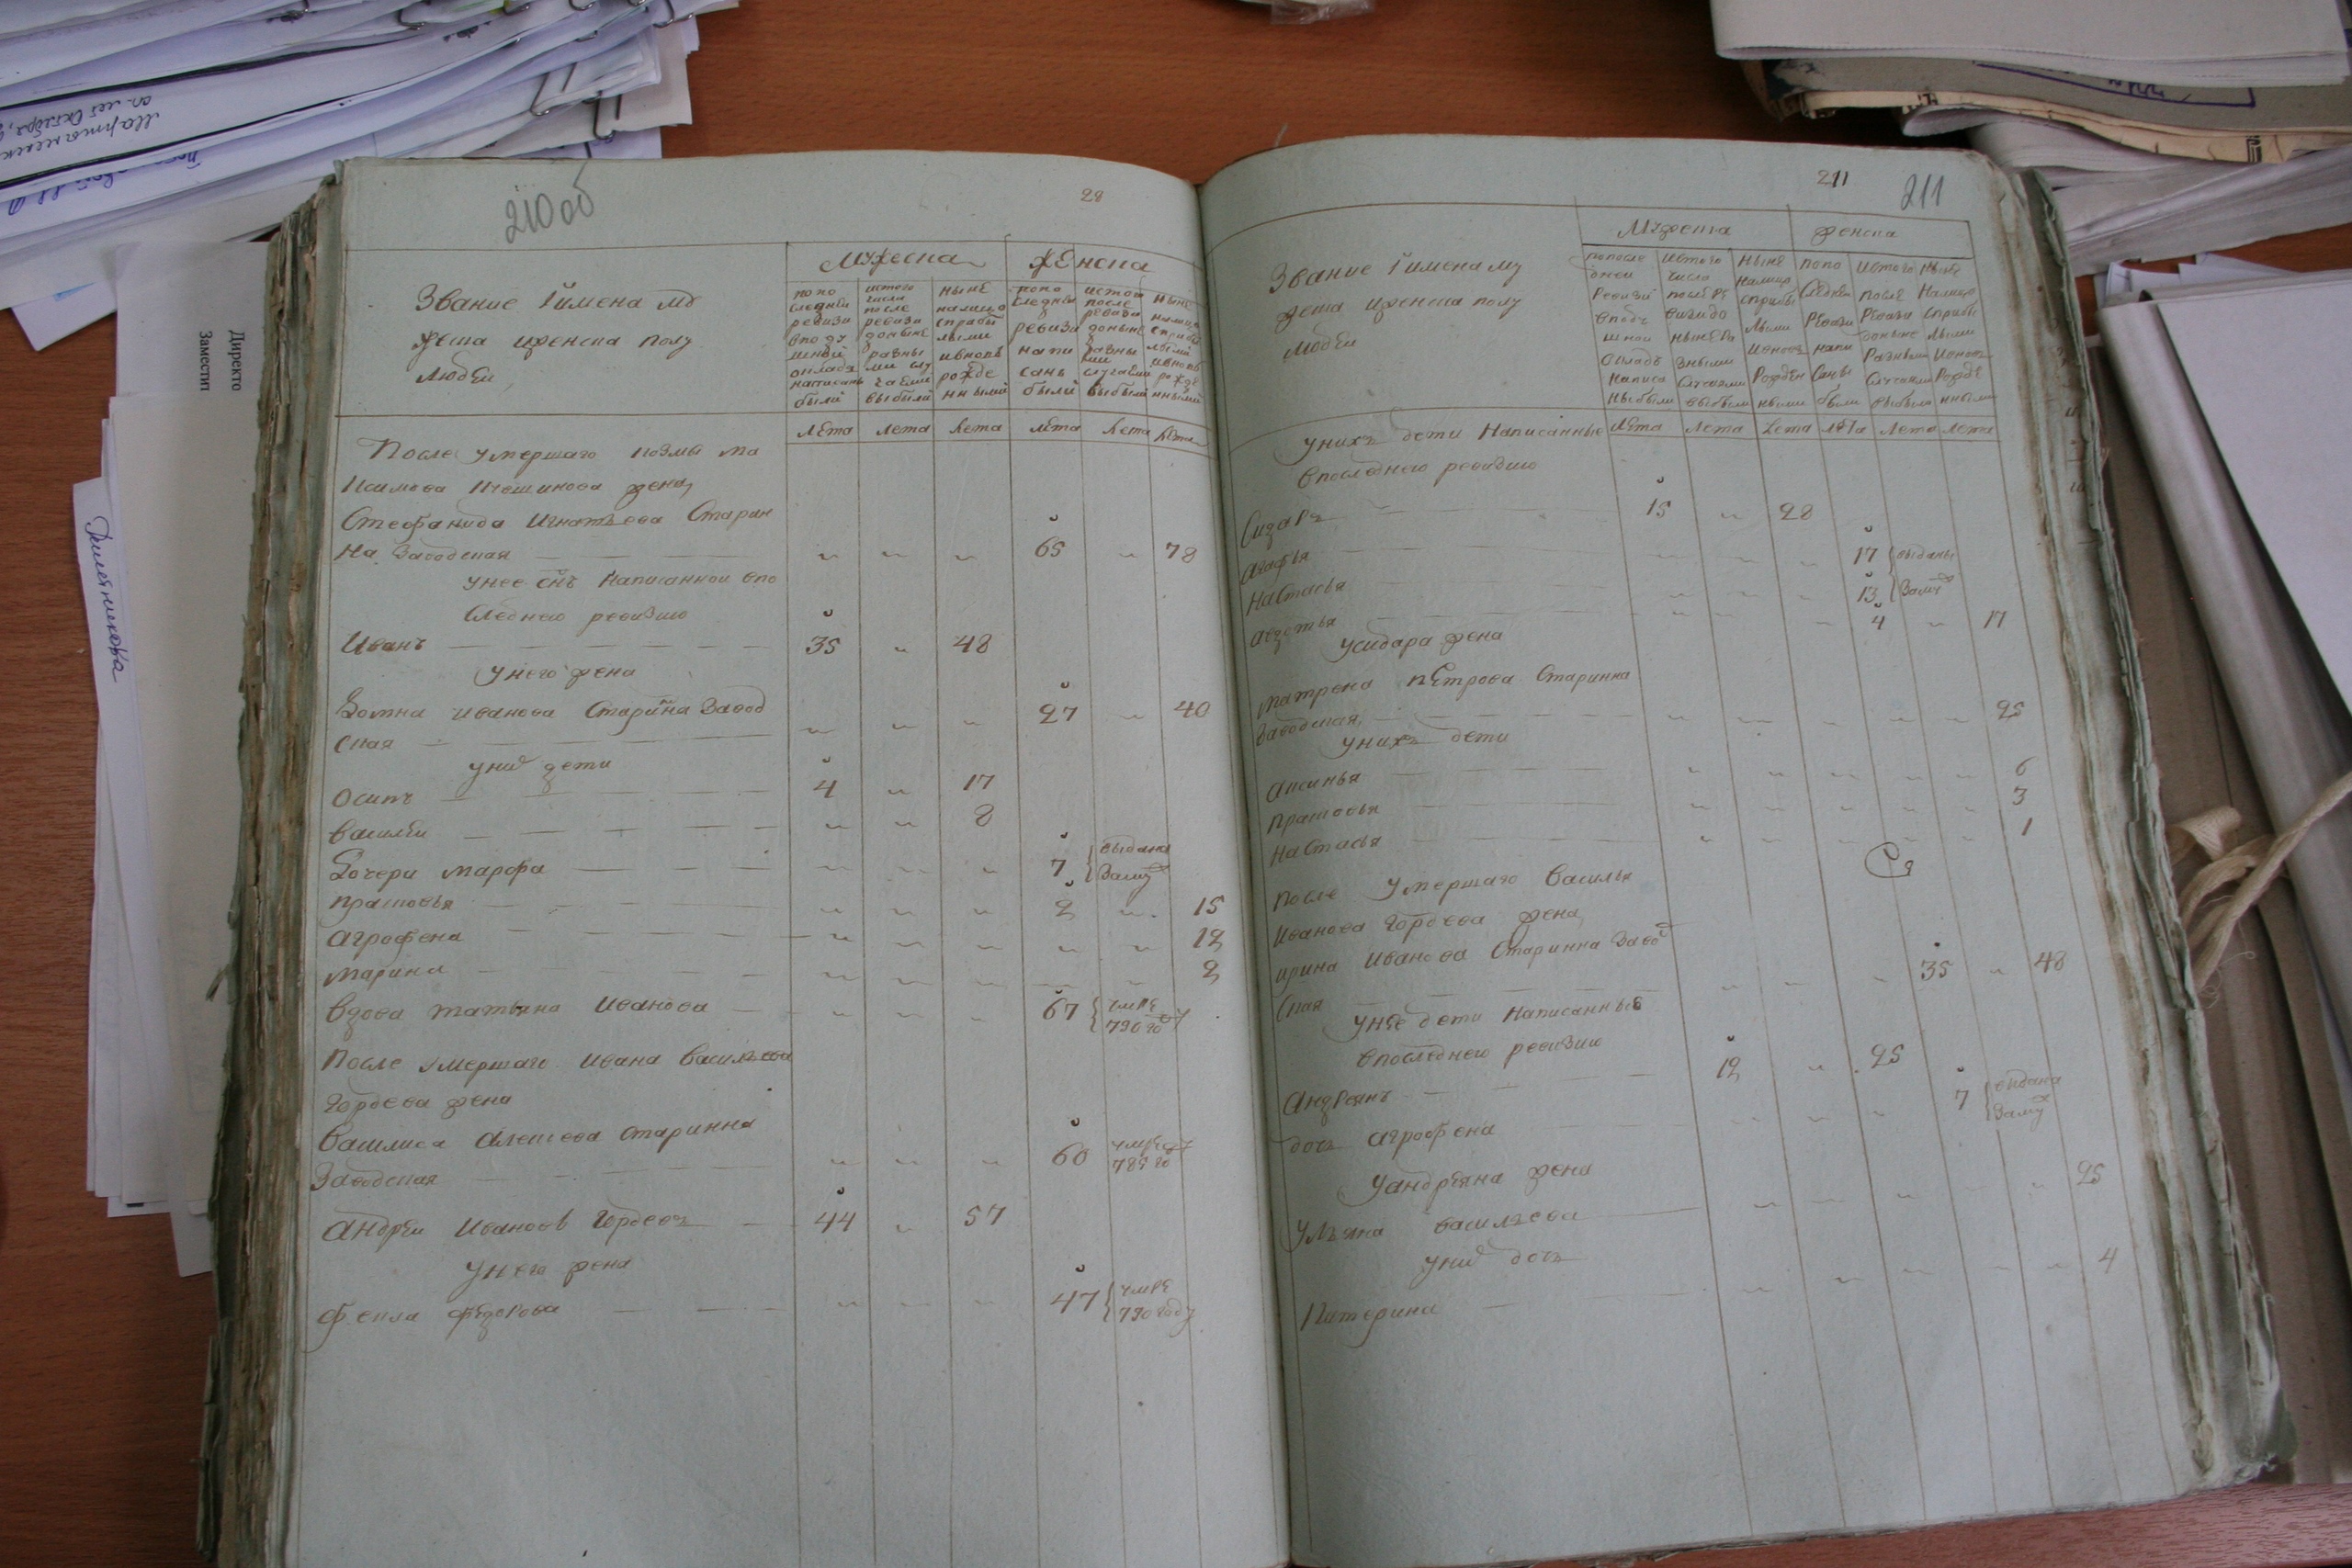 210 об
28
Звание I имена мұ
жеска иженска полу
людеи
Мужеска
Женска
попо следнеи ревизи вподу шнои окладъ написаны были
истого числа после ревизи доныне разны ми слу чаеми выбыли
ныне налицо сприбы лыми ивновь рожде нными
попо следнеи ревизи напи саны были
истого после ревизи доныне разны ми случаеми выбыли
ныне налицо сприбы лыми ивновь рожде нными
Лета Лета Лета Лета Лета Лета
После умершаго козмы ма
ксимова
жена
Стефанида Игнатьева Старин
на Заводская 65 78
унее снъ написанной впо
следнею ревизию
Иванъ 35 48
унего жена
Домна Иванова Старинна Завод
ская 27 40
уних дети
Осипъ 4 17
Василеи 8
Дочери марфа 7 выдана замуж
прасковья 2 15
агрофена 12
марина 2
вдова татьяна Иванова 67 умре 790 году
После умершаго Ивана Васильева
Гордеева жена
Василиса Алексеева старинна
Заводская 60 умре 785 году
Андреи Иванов Гордеевъ 44 57
унего жена
Фекла Федорова 47 умре 790 году
211
211
Звание I имена му
жеска иженска полу
людеи
Мужеска
женска
попосле днеи Ревизи вподу шнои окладъ написа ны были
истого числа после ре визи до ныне ра зными случаями выбыли
ныне налицо сприбы лыми ивновь рожден ными
попо следнеи Ревизи напи саны были
истого после Ревизи доныне разными случаями выбыли
ныне налицо сприбы лыми ивновь рожде нными
унихъ дети написанные Лета Лета Лета Лета Лета Лета
впоследнею ревизию
Сидаръ 15 28
агафья 17 выданы
настасья 13 замуж
авдотья 4 17
усидара жена
матрена Петрова Старинна
Заводская 25
унихъ дети
аксинья 6
прасковья 3
настасья 1
после умершаго василья
Иванова Гордеева жена
ирина Иванова Старинна Завод
ская 35 48
унее дети написанные
впоследнею ревизию
андреянъ 12 25
дочь агрофена 7 выдана замуж
уандреяна жена
Ульяна васильева 25
уних дочь
Катерина 4
Директо
Заместип